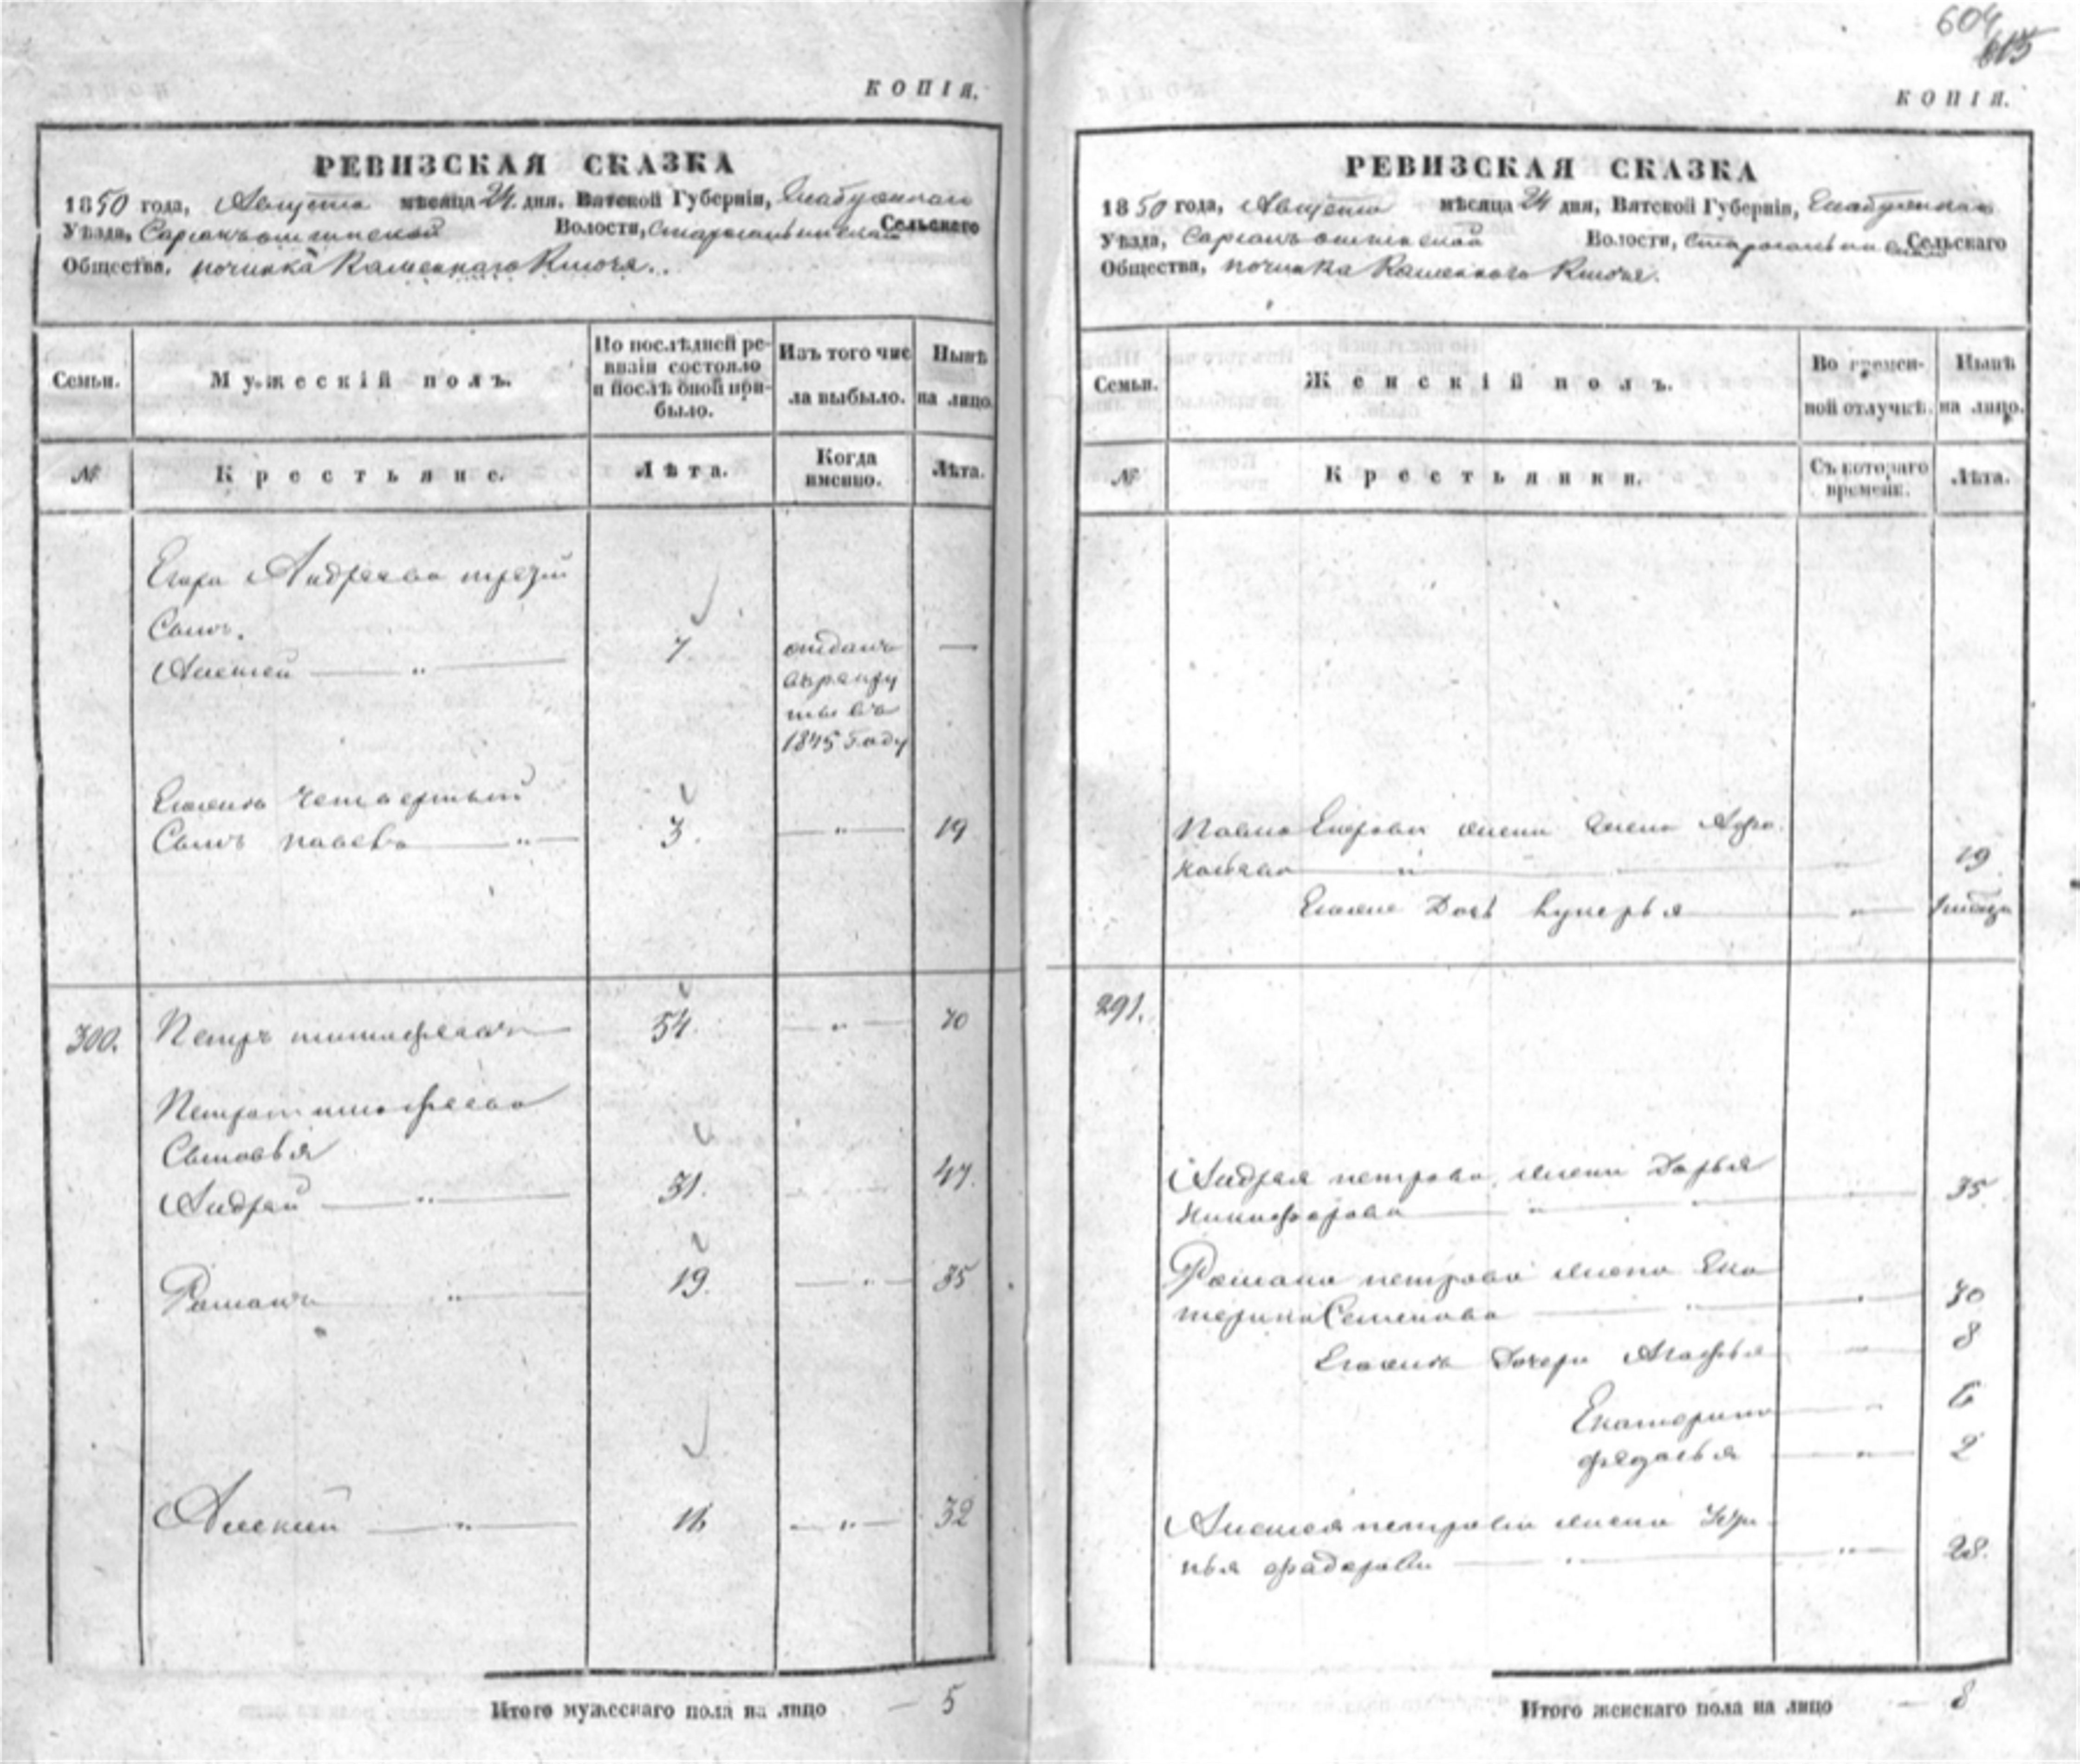 604
615
КОПІЯ.
РЕВИЗСКАЯ СКАЗКА
1850 года, Августа мѣсяца 24 дня, Вятской Губерніи, Елабужскаго
Уѣзда, Волости, Сельскаго
Общества, починка Каменнаго Ключа.
Семьи.
Мужескій полъ.
По послѣдней ре-
визіи состояло
и послѣ оной при-
было.
Изъ того чис
ла выбыло.
Нынѣ
на лицо.
№
Крестьяне.
Лѣта.
Когда
именно.
Лѣта.
Егора Андреева третій
Сынъ.
Алексей — „ — 7 отданъ —
врекру
ты въ
1845 году
Егожъ четвертый
Сынъ павелъ — „ — 3. — „ — 19
300. Петръ тимофеевъ — 54. — „ — 70
Петра тимофеева
Сыновья
Андрей — „ — 31. 47.
Романъ „ — 19. — „ — 35
Алексей — „ — 16 — „ — 32
Итого мужескаго пола на лицо — 5
КОПІЯ.
РЕВИЗСКАЯ СКАЗКА
1850 года, Августа мѣсяца 24 дня, Вятской Губерніи, Елабужскаго
Уѣзда, Волости, Сельскаго
Общества, починка Каменнаго Ключа.
Семьи.
Женскій полъ.
Во времен-
ной отлучкѣ.
Нынѣ
на лицо.
№
Крестьянки.
Съ котораго
времени.
Лѣта.
Павла Егорова жена Елена
— „ — 19
Егожъ Дочь — „ —
291.
Андрея петрова жена Дарья
Никифорова — „ — 35
Романа петрова жена Ека
терина Семенова — „ — 30
Егожъ Дочери Агафья — „ — 8
Екатерина — „ — 6
— „ — 2
Алексея петрова жена
нья фадорова — „ — 28.
Итого женскаго пола на лицо — 8